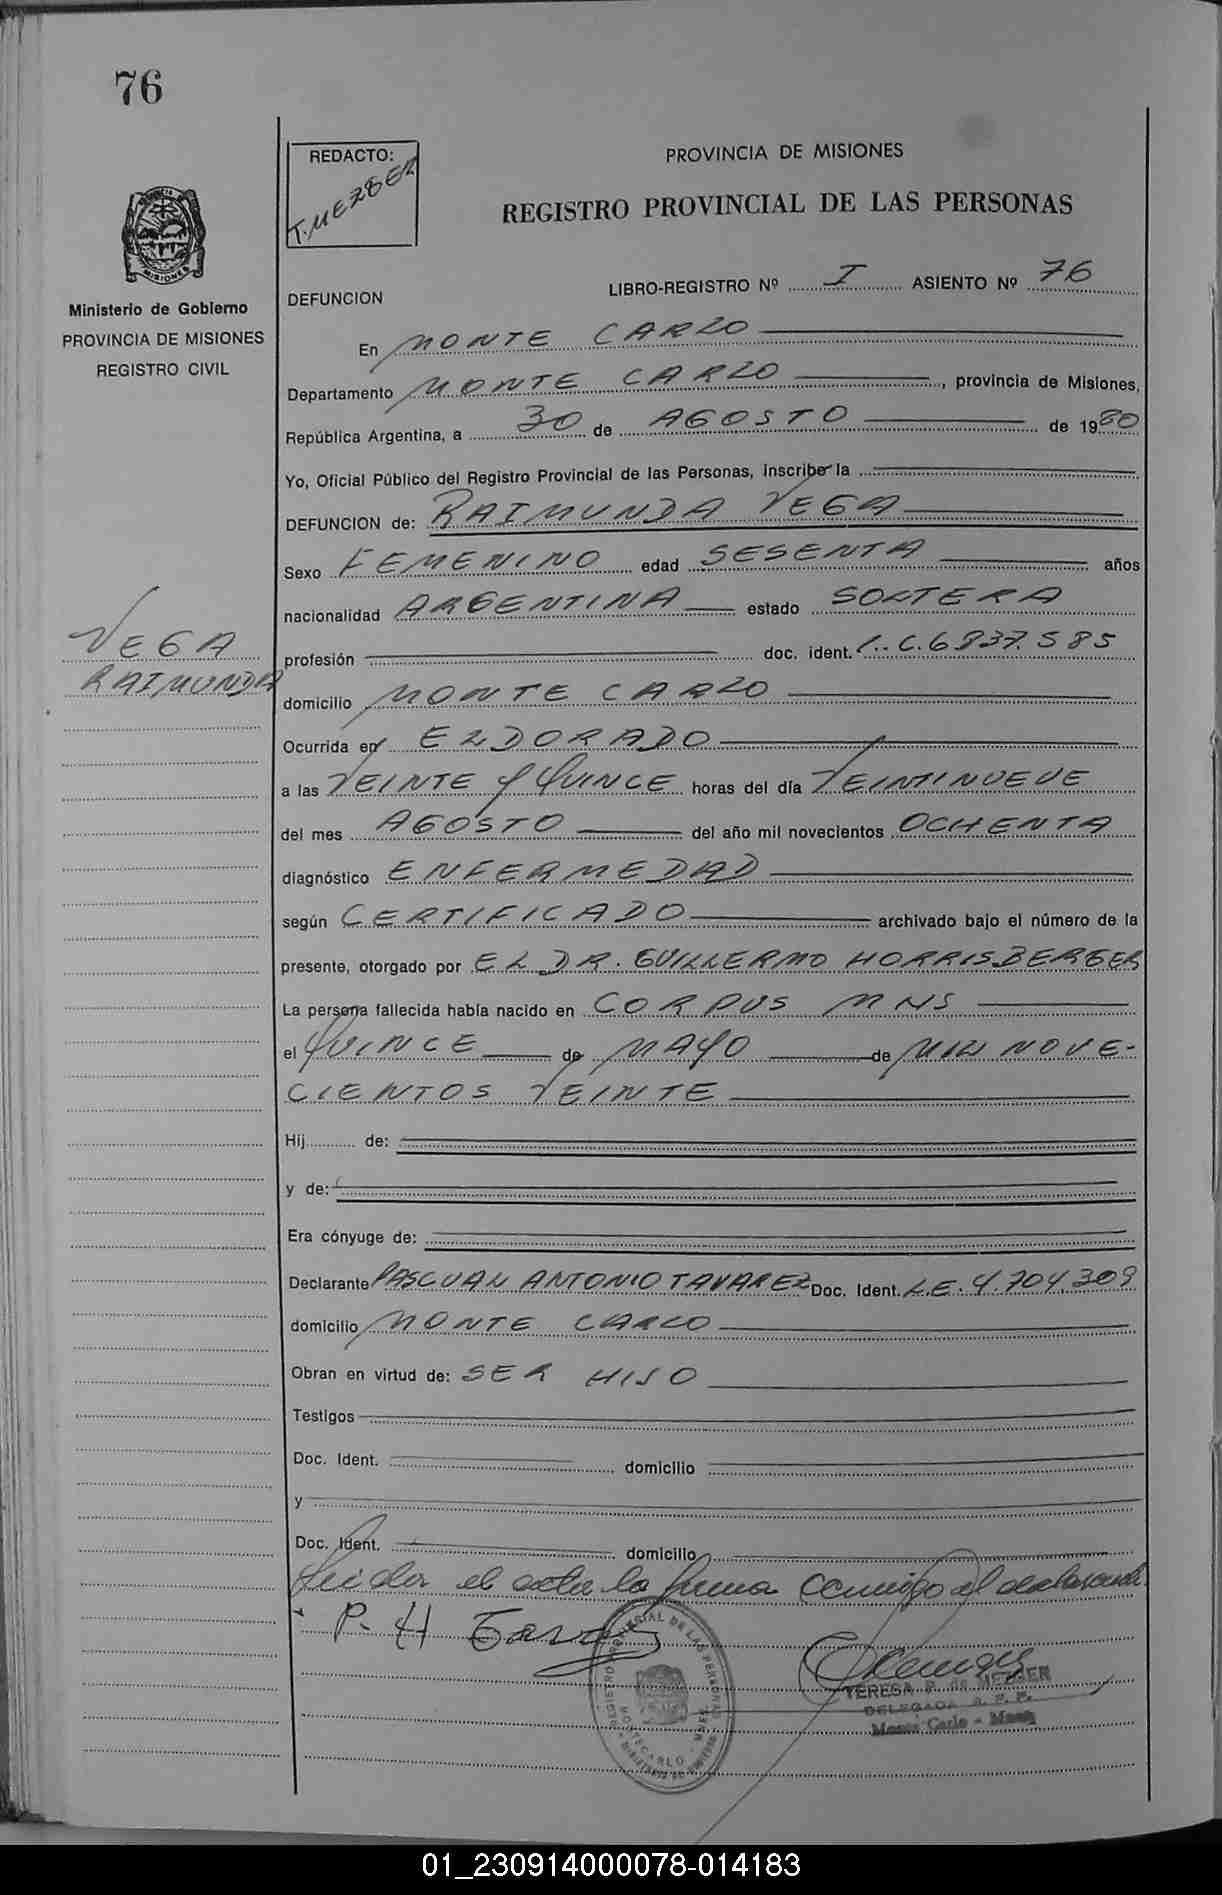 76
REDACTO:
T. MEZGER
PROVINCIA DE MISIONES
REGISTRO PROVINCIAL DE LAS PERSONAS
MISIONES
Ministerio de Gobierno
PROVINCIA DE MISIONES
REGISTRO CIVIL
DEFUNCION LIBRO-REGISTRO Nº I ASIENTO Nº 76
En MONTE CARLO
Departamento MONTE CARLO, provincia de Misiones,
República Argentina, a 30 de AGOSTO de 1980
Yo, Oficial Público del Registro Provincial de las Personas, inscribo la
DEFUNCION de: RAIMUNDA VEGA
Sexo FEMENINO edad SESENTA años
nacionalidad ARGENTINA estado SOLTERA
VEGA
RAIMUNDA
profesión doc. ident. L.C. 6837.585
domicilio MONTE CARLO
Ocurrida en ELDORADO
a las VEINTE y QUINCE horas del día VEINTINUEVE
del mes AGOSTO del año mil novecientos OCHENTA
diagnóstico ENFERMEDAD
según CERTIFICADO archivado bajo el número de la
presente, otorgado por EL DR. GUILLERMO HORRISBERGER
La persona fallecida había nacido en CORPUS MNS
el QUINCE de MAYO de MIL NOVE-
CIENTOS VEINTE
Hij de:
y de:
Era cónyuge de:
Declarante PASCUAL ANTONIO TAVAREZ Doc. Ident. L.E. 4.704.309
domicilio MONTE CARLO
Obran en virtud de: SER HIJO
Testigos
Doc. Ident. domicilio
y
Doc. Ident. domicilio
Leida el acta la firma conmigo el declarante.
P. H
REGISTRO PROVINCIAL DE LAS PERSONAS
MONTECARLO - MNES
TERESA P. de MEZGER
DELEGADA R. P. P.
Monte Carlo - Mnes
01_230914000078-014183